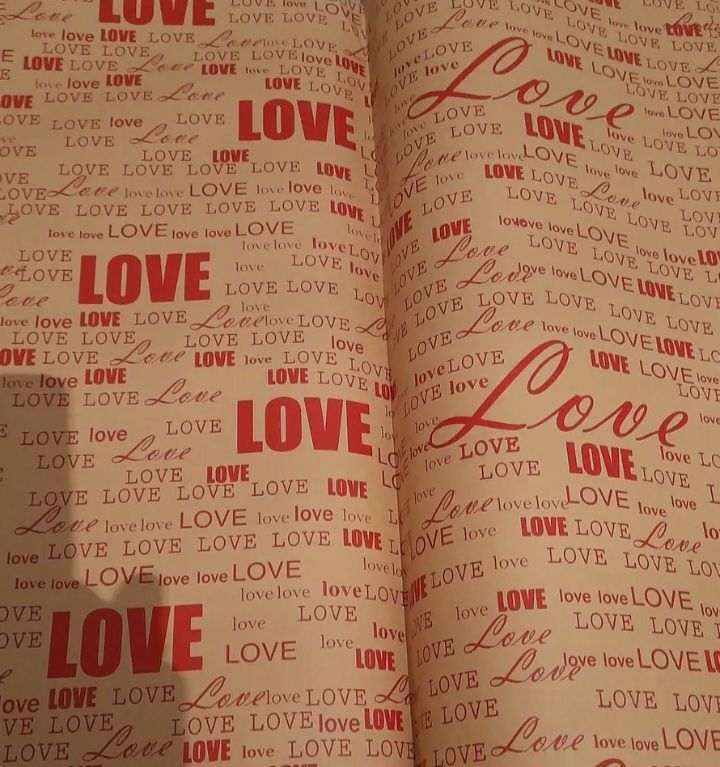 LOVE LOVE LOVE
Love LOVE LOVE LOVE LOVE
love love LOVE LOVE Love love LOVE LOVE
LOVE LOVE LOVE LOVE love LOVE
LOVE love LOVE Love LOVE love LOVE LOVE
love love LOVE LOVE LOVE
LOVE LOVE LOVE Love
LOVE LOVE love LOVE LOVE
LOVE Love
LOVE LOVE
LOVE LOVE LOVE LOVE LOVE
LOVE Love love love LOVE love love love
LOVE LOVE LOVE LOVE LOVE LOVE
love love LOVE love love LOVE
love love love LOVE
LOVE LOVE love LOVE love
LOVE LOVE LOVE
love
love love LOVE LOVE Love love LOVE
LOVE LOVE LOVE LOVE love
LOVE LOVE Love LOVE love LOVE LOVE
love love LOVE LOVE LOVE
LOVE LOVE Love
LOVE love LOVE LOVE
LOVE Love
LOVE LOVE
LOVE LOVE LOVE LOVE LOVE
Love love love LOVE love love love
love LOVE LOVE LOVE LOVE LOVE
love love LOVE love love LOVE
love love love LOVE
LOVE love LOVE
LOVE love love
LOVE LOVE
love LOVE LOVE Love love LOVE
LOVE LOVE LOVE love LOVE
LOVE Love LOVE love LOVE LOVE
LOVE Love LOVE LOVE LOVE
love LOVE LOVE LOVE love LOVE
love Love love LOVE
LOVE LOVE LOVE love LOVE
LOVE LOVE LOVE LOVE
Love love love LOVE love LOVE
LOVE LOVE Love love LOVE
LOVE LOVE LOVE LOVE
LOVE love love LOVE love love
Love LOVE LOVE LOVE
LOVE Love love love LOVE LOVE
LOVE LOVE LOVE LOVE LOVE
LOVE Love love love LOVE LOVE
love LOVE LOVE LOVE love
love Love LOVE
love LOVE LOVE love
LOVE LOVE LOVE
Love love love LOVE love love
LOVE love LOVE LOVE Love
LOVE love LOVE LOVE LOVE
love LOVE love love LOVE
Love LOVE LOVE
Love love love LOVE
LOVE LOVE LOVE LOVE
LOVE Love love love LOVE